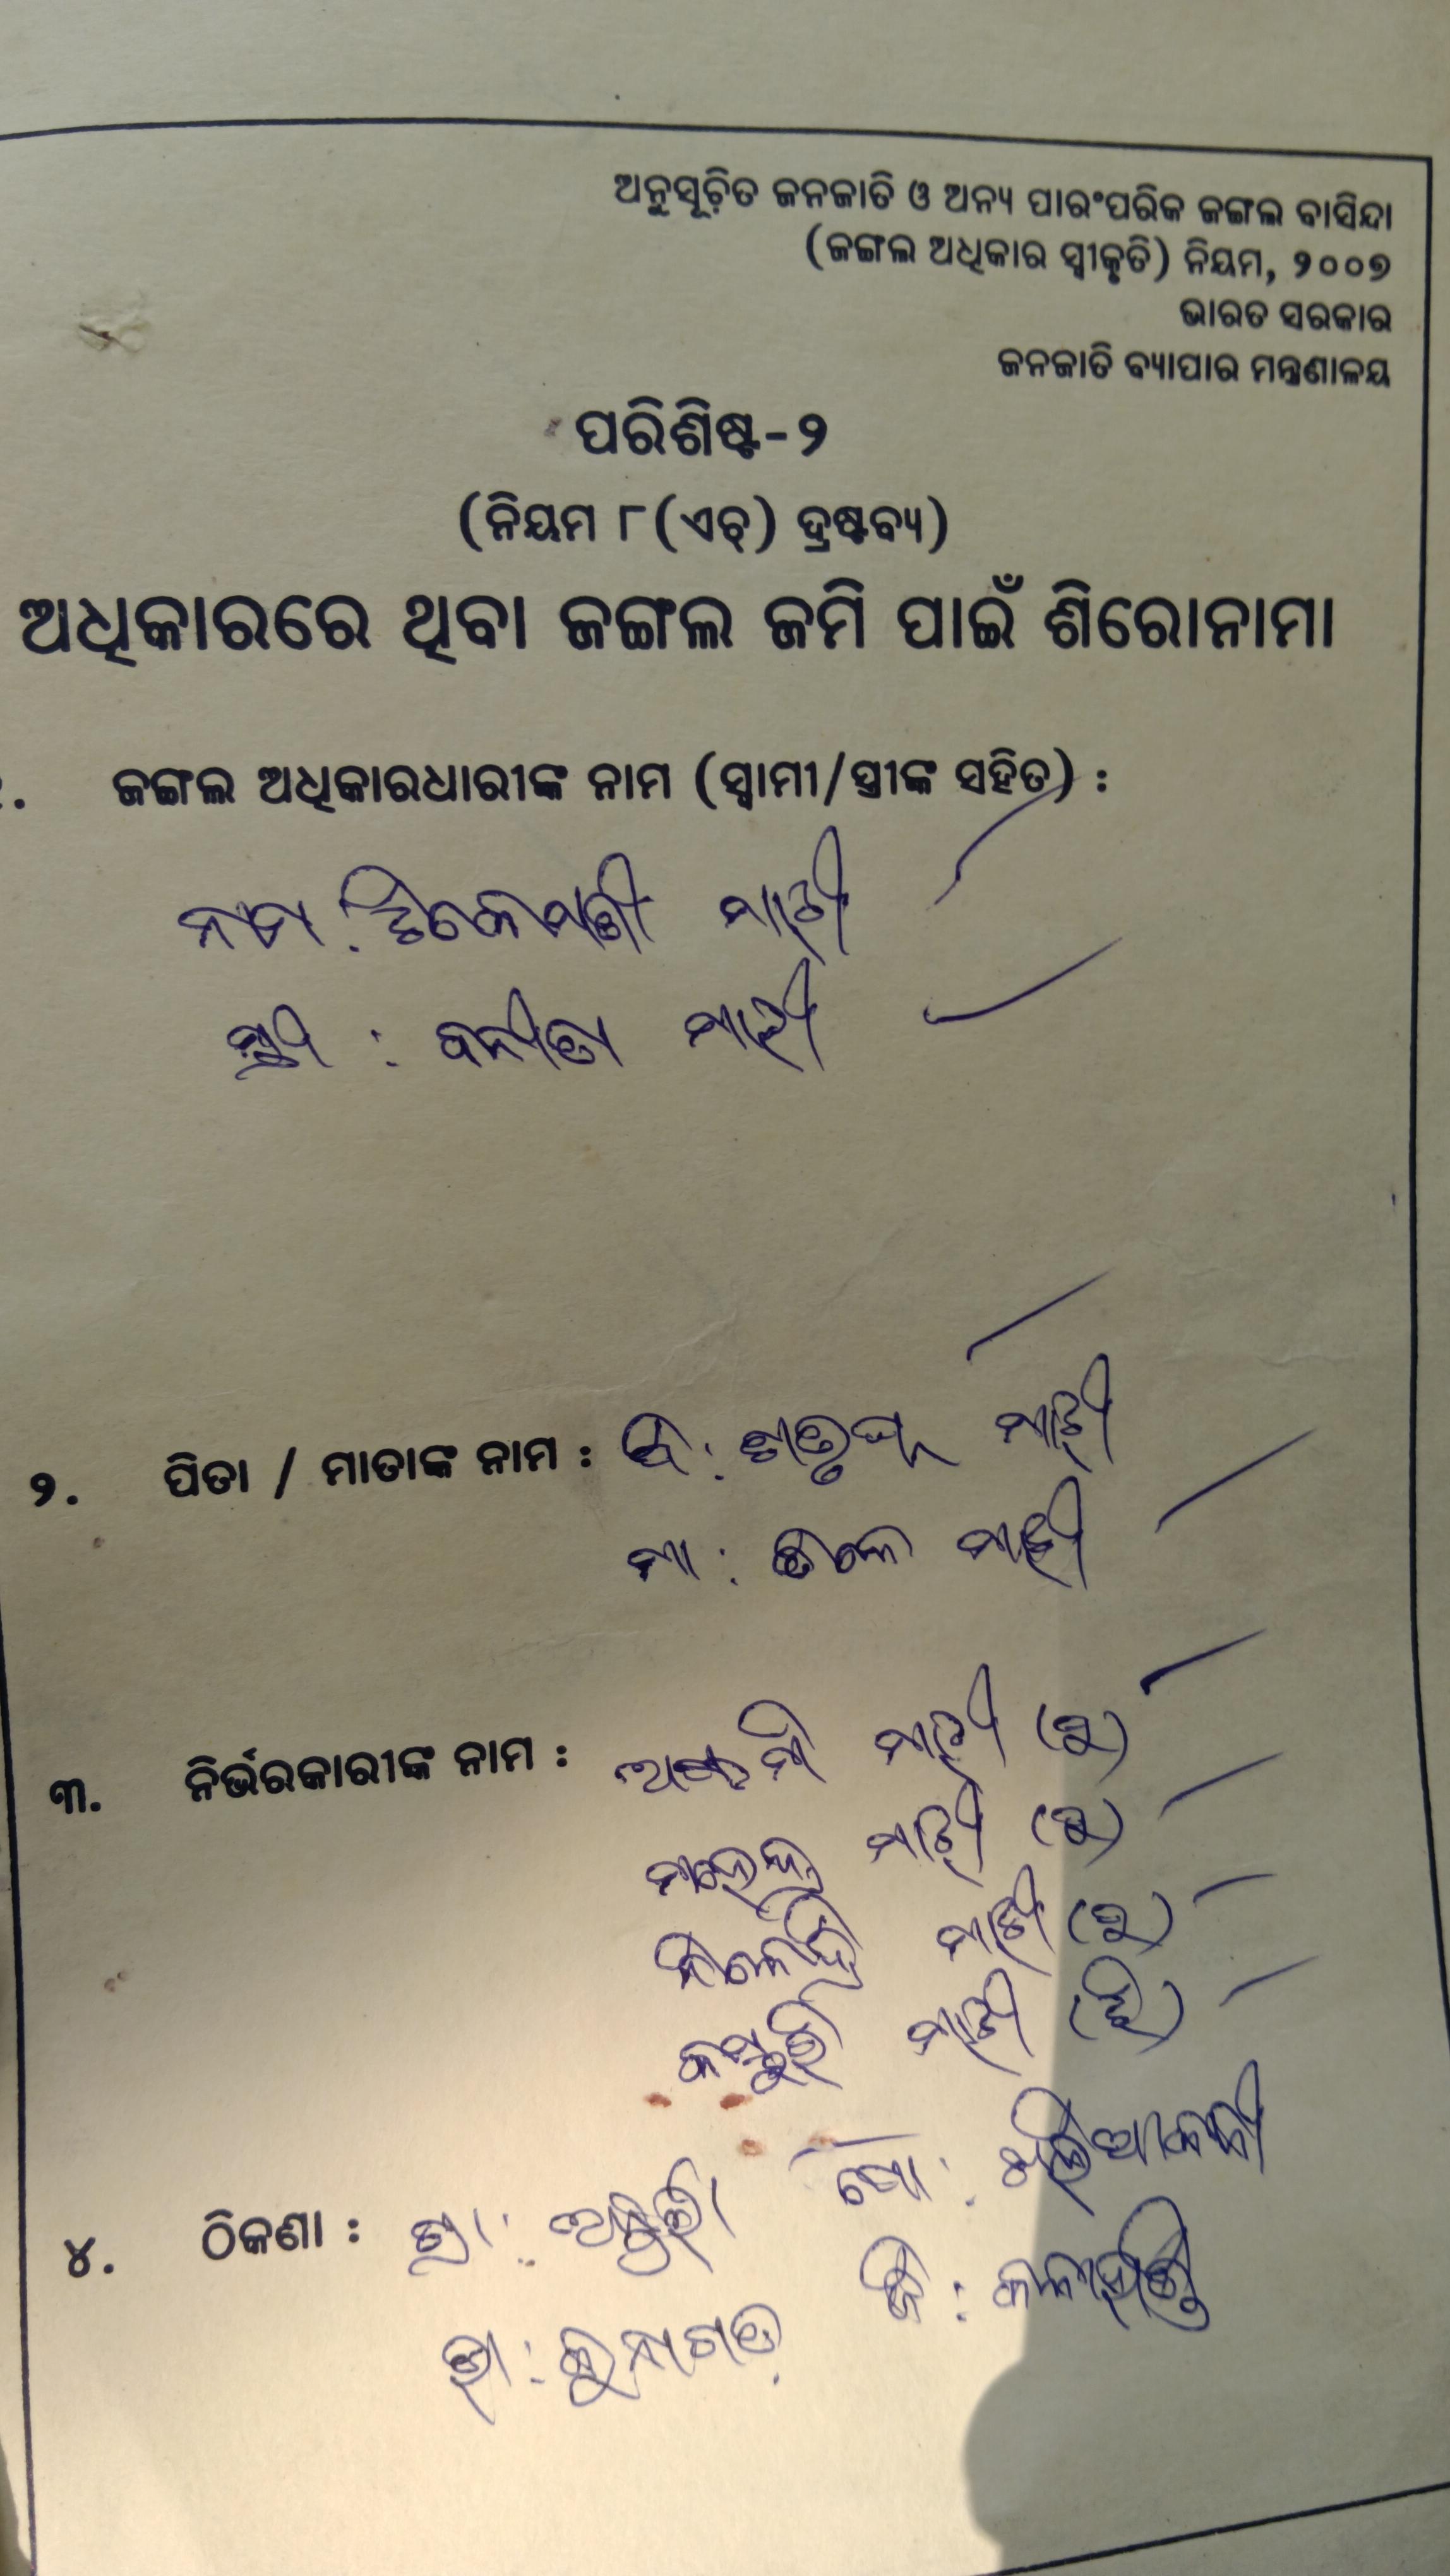 ଅନୁସୂଚିତ ଜନଜାତି ଓ ଅନ୍ୟ ପାରଂପରିକ ଜଙ୍ଗଲ ବାସିନ୍ଦା
(ଜଙ୍ଗଲ ଅଧିକାର ସ୍ୱୀକୃତି) ନିୟମ, ୨୦୦୭
ଭାରତ ସରକାର
ଜନଜାତି ବ୍ୟାପାର ମନ୍ତ୍ରଣାଳୟ
ପରିଶିଷ୍ଟ-୨
(ନିୟମ ୮(ଏଚ୍) ଦ୍ରଷ୍ଟବ୍ୟ)
ଅଧିକାରରେ ଥିବା ଜଙ୍ଗଲ ଜମି ପାଇଁ ଶିରୋନାମା
ଜଙ୍ଗଲ ଅଧିକାରଧାରୀଙ୍କ ନାମ (ସ୍ୱାମୀ/ସ୍ତ୍ରୀଙ୍କ ସହିତ) :
ନାମ : ମାଝୀ
ସ୍ତ୍ରୀ : ବନୀତା ମାଝୀ
୨. ପିତା / ମାତାଙ୍କ ନାମ : ପି : ମାଝୀ
ମା : ମାଝୀ
୩. ନିର୍ଭରକାରୀଙ୍କ ନାମ : ମାଝୀ (ପୁ)
ମାଝୀ (ପୁ)
ମାଝୀ (ପୁ)
କସ୍ତୁରି ମାଝୀ (ଝି)
୪. ଠିକଣା : ଗ୍ରା : ପୋ :
ଥା : ଜୁନାଗଡ଼ ଜି : କଳାହାଣ୍ଡି